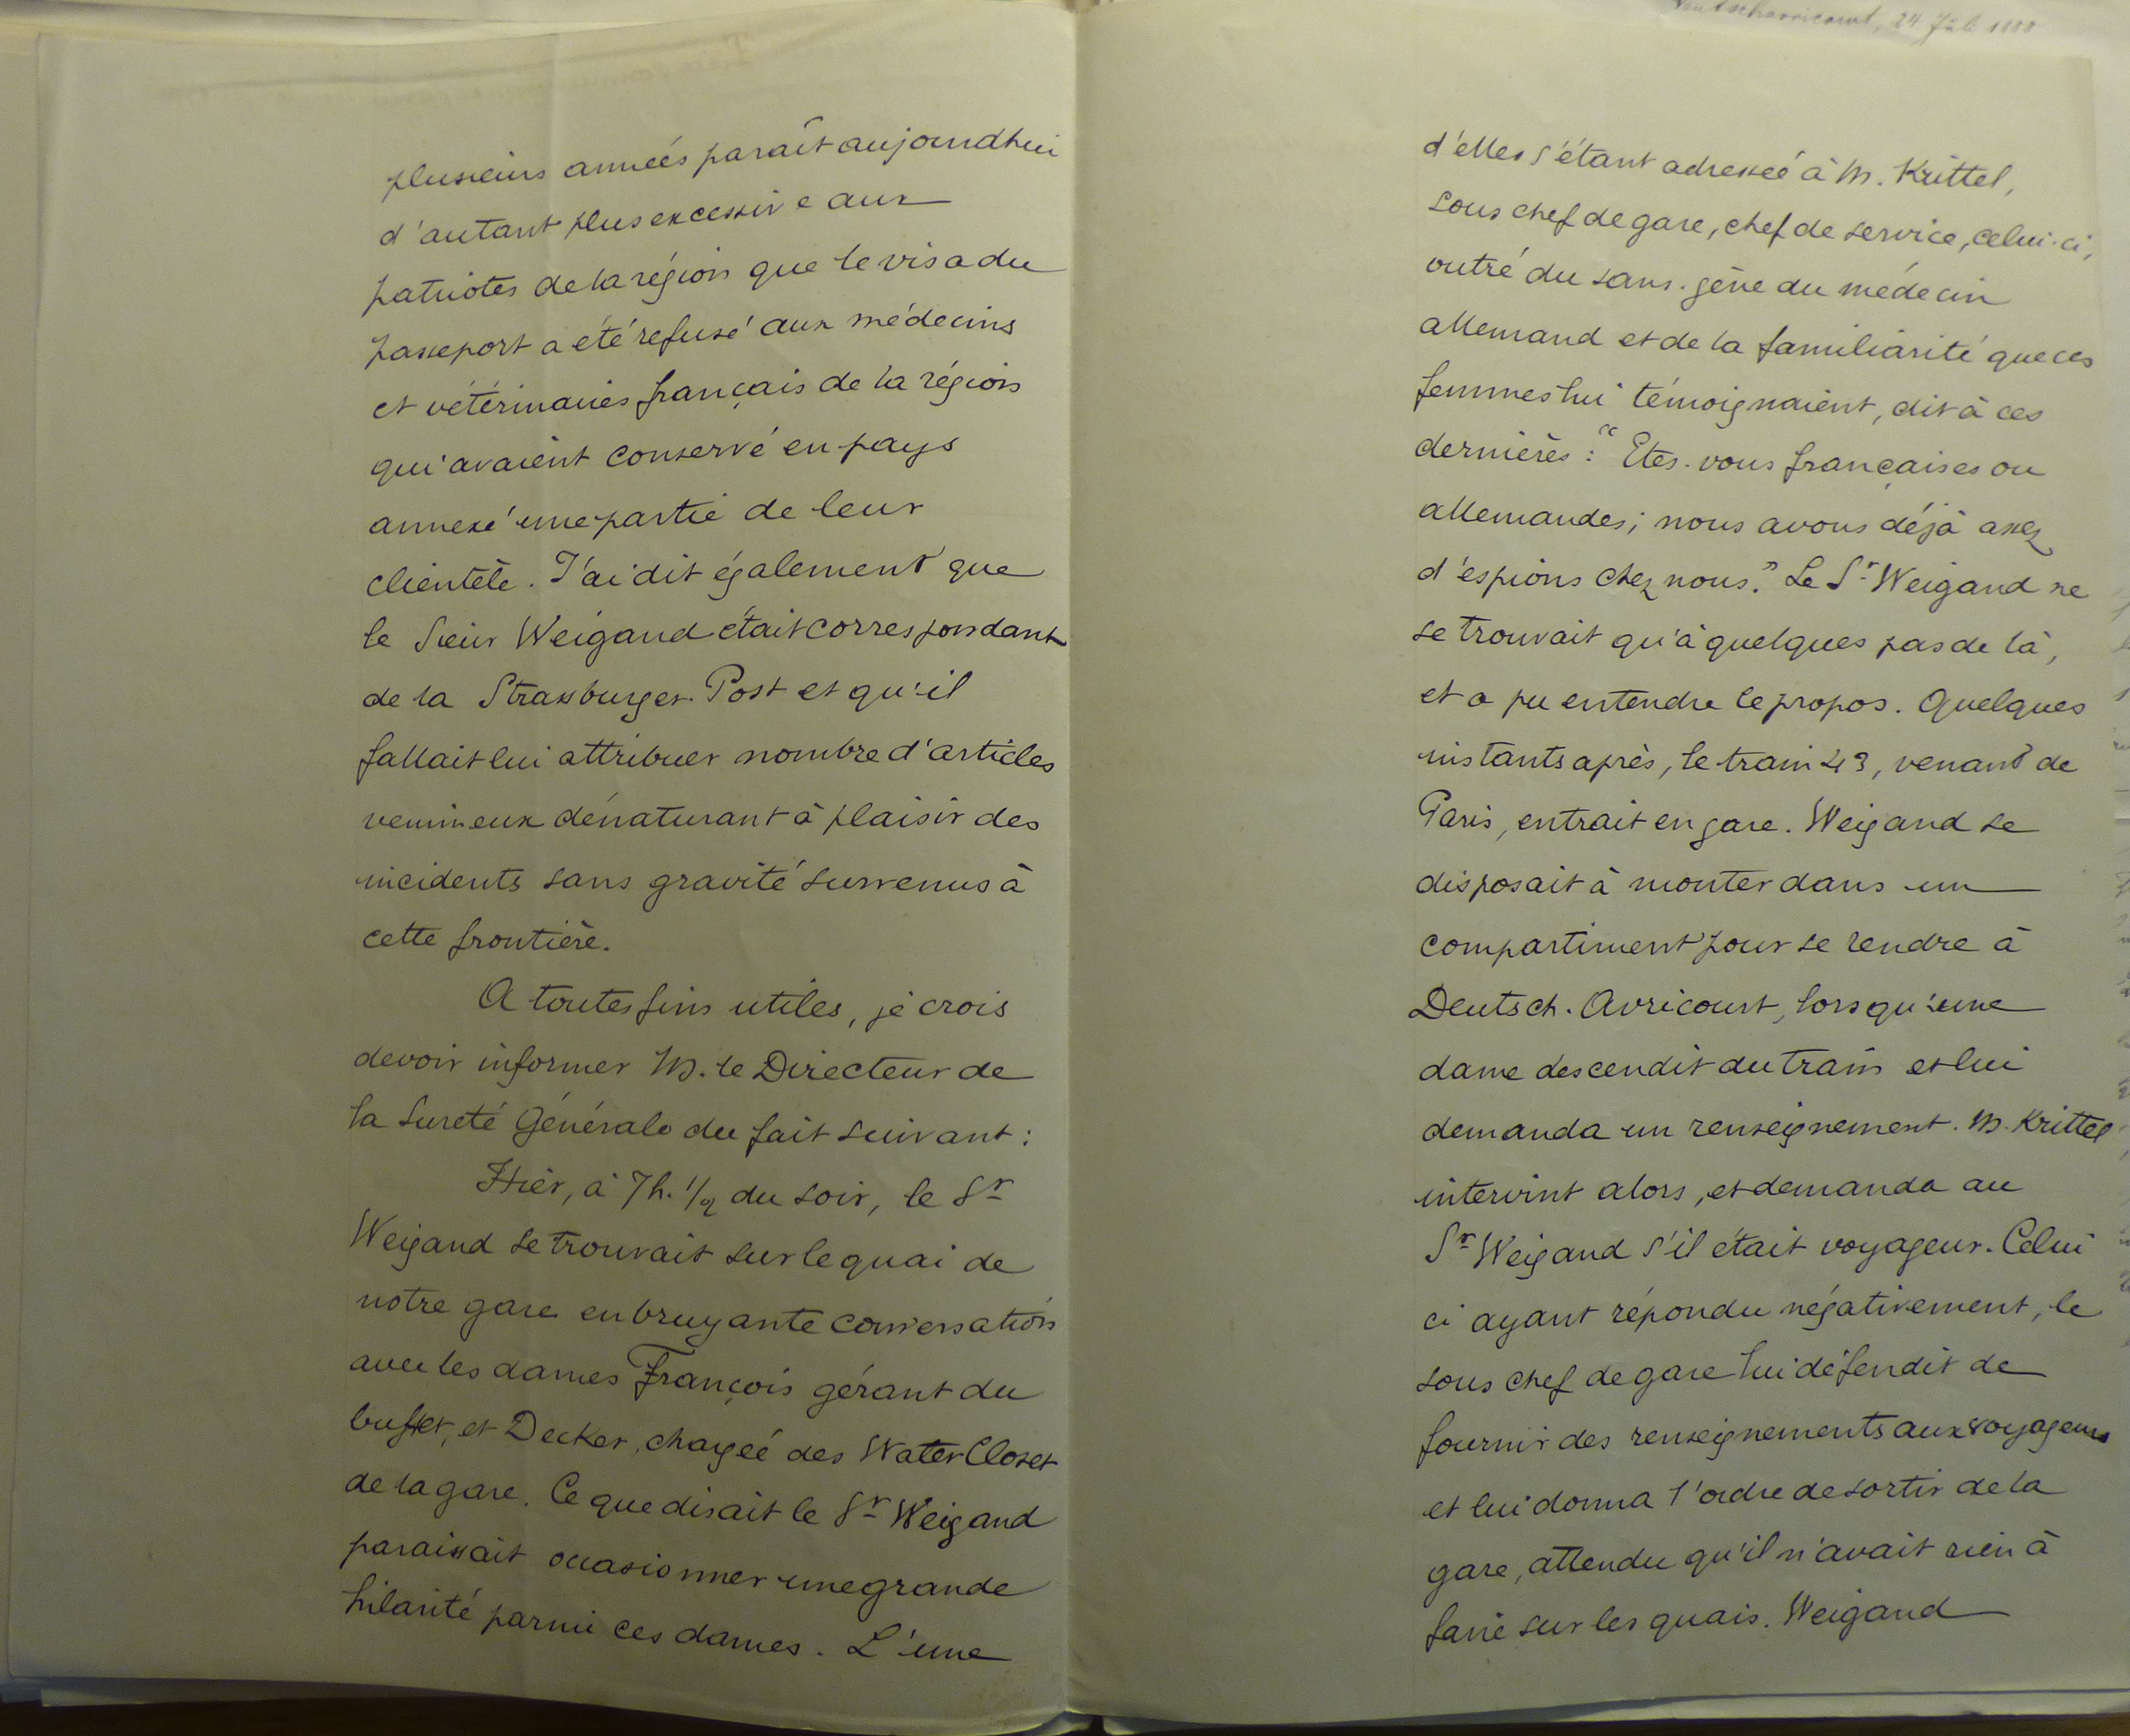 plusieurs années paraît aujourdhui
d'autant plus excessive aux
patriotes de la région que le visa du
passeport a été refusé aux médecins
et vétérinaires français de la région
qui avaient conservé en pays
annexé une partie de leur
clientèle. J'ai dit également que
le Sieur Weigand était correspondant
de la Strassburger-Post et qu'il
fallait lui attribuer nombre d'articles
venimeux dénaturant à plaisir des
incidents sans gravité survenus à
cette frontière.
A toutes fins utiles, je crois
devoir informer M. le Directeur de
la Sureté Générale du fait suivant :
Hier, à 7 h. 1/2 du soir, le Sr
Weigand se trouvait sur le quai de
notre gare en bruyante conversation
avec les dames François gérant du
buffet, et Decker, chargée des Water Closet
de la gare. Ce que disait le Sr Weigand
paraissait occasionner une grande
hilarité parmi ces dames. L'une
24 Juli 1888
d'elles s'étant adressée à M. Krittel,
sous chef de gare, chef de service, celui-ci,
outré du sans-gêne du médecin
allemand et de la familiarité que ces
femmes lui témoignaient, dit à ces
dernières : "Etes-vous françaises ou
allemandes; nous avons déjà assez
d'espions chez nous." Le Sr Weigand ne
se trouvait qu'à quelques pas de là,
et a pu entendre le propos. Quelques
instants après, le train 43, venant de
Paris, entrait en gare. Weigand se
disposait à monter dans un
compartiment pour se rendre à
Deutsch-Avricourt, lorsqu'une
dame descendit du train et lui
demanda un renseignement. M. Krittel
intervint alors, et demanda au
Sr Weigand s'il était voyageur. Celui
ci ayant répondu négativement, le
sous chef de gare lui défendit de
fournir des renseignements aux voyageurs
et lui donna l'ordre de sortir de la
gare, attendu qu'il n'avait rien à
faire sur les quais. Weigand